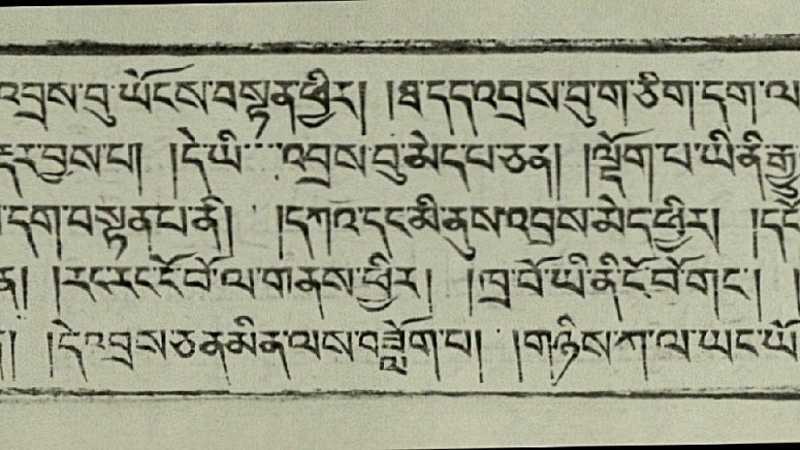 འབྲས་བུ་ཡོངས་བསྟན་ཕྱིར། །ཐ་དད་འབྲས་བུ་གཅིག་དག་ལ
དར་བྱས་པ། །དེ་ཡི་འབྲས་བུ་མེད་པ་ཅན། །ལྡོག་པ་ཡི་ནི་རྒྱུ
དག་བསྟན་པ་ནི། །དཀའ་དང་མི་ནུས་འབྲས་མེད་ཕྱིར། །དངོ
ན། །རང་རང་ངོ་བོ་ལ་གནས་ཕྱིར། །ཁྲ་བོ་ཡི་ནི་ངོ་བོ་གང་། །
། །དེ་འབྲས་ཅན་མིན་ལས་བཟློག་པ། །གཉིས་ཀ་ལ་ཡང་ཡོ